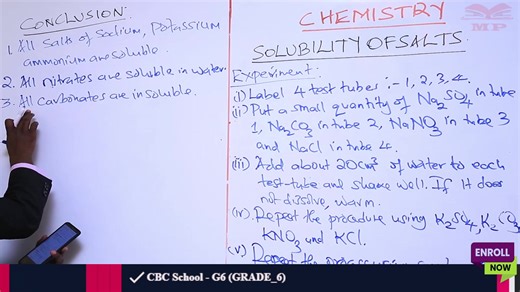 CONCLUSION:
1. All Salts of Sodium, Potassium
ammonium are soluble.
2. All nitrates are soluble in water.
3. All Carbonates are insoluble.
CHEMISTRY
SOLUBILITY OF SALTS.
Experiment:
(i) Label 4 test tubes :- 1, 2, 3, 4.
(ii) Put a small quantity of Na₂SO₄ in tube
1, Na₂CO₃ in tube 2, NaNO₃ in tube 3
and NaCl in tube 4.
(iii) Add about 20cm³ of water to each
test-tube and shake well. If it does
not dissolve, warm.
(iv) Repeat the procedure using K₂SO₄, K₂CO₃
KNO₃ and KCl.
(v) Repeat the
MP
ENROLL
NOW
✓ CBC School - G6 (GRADE_6)